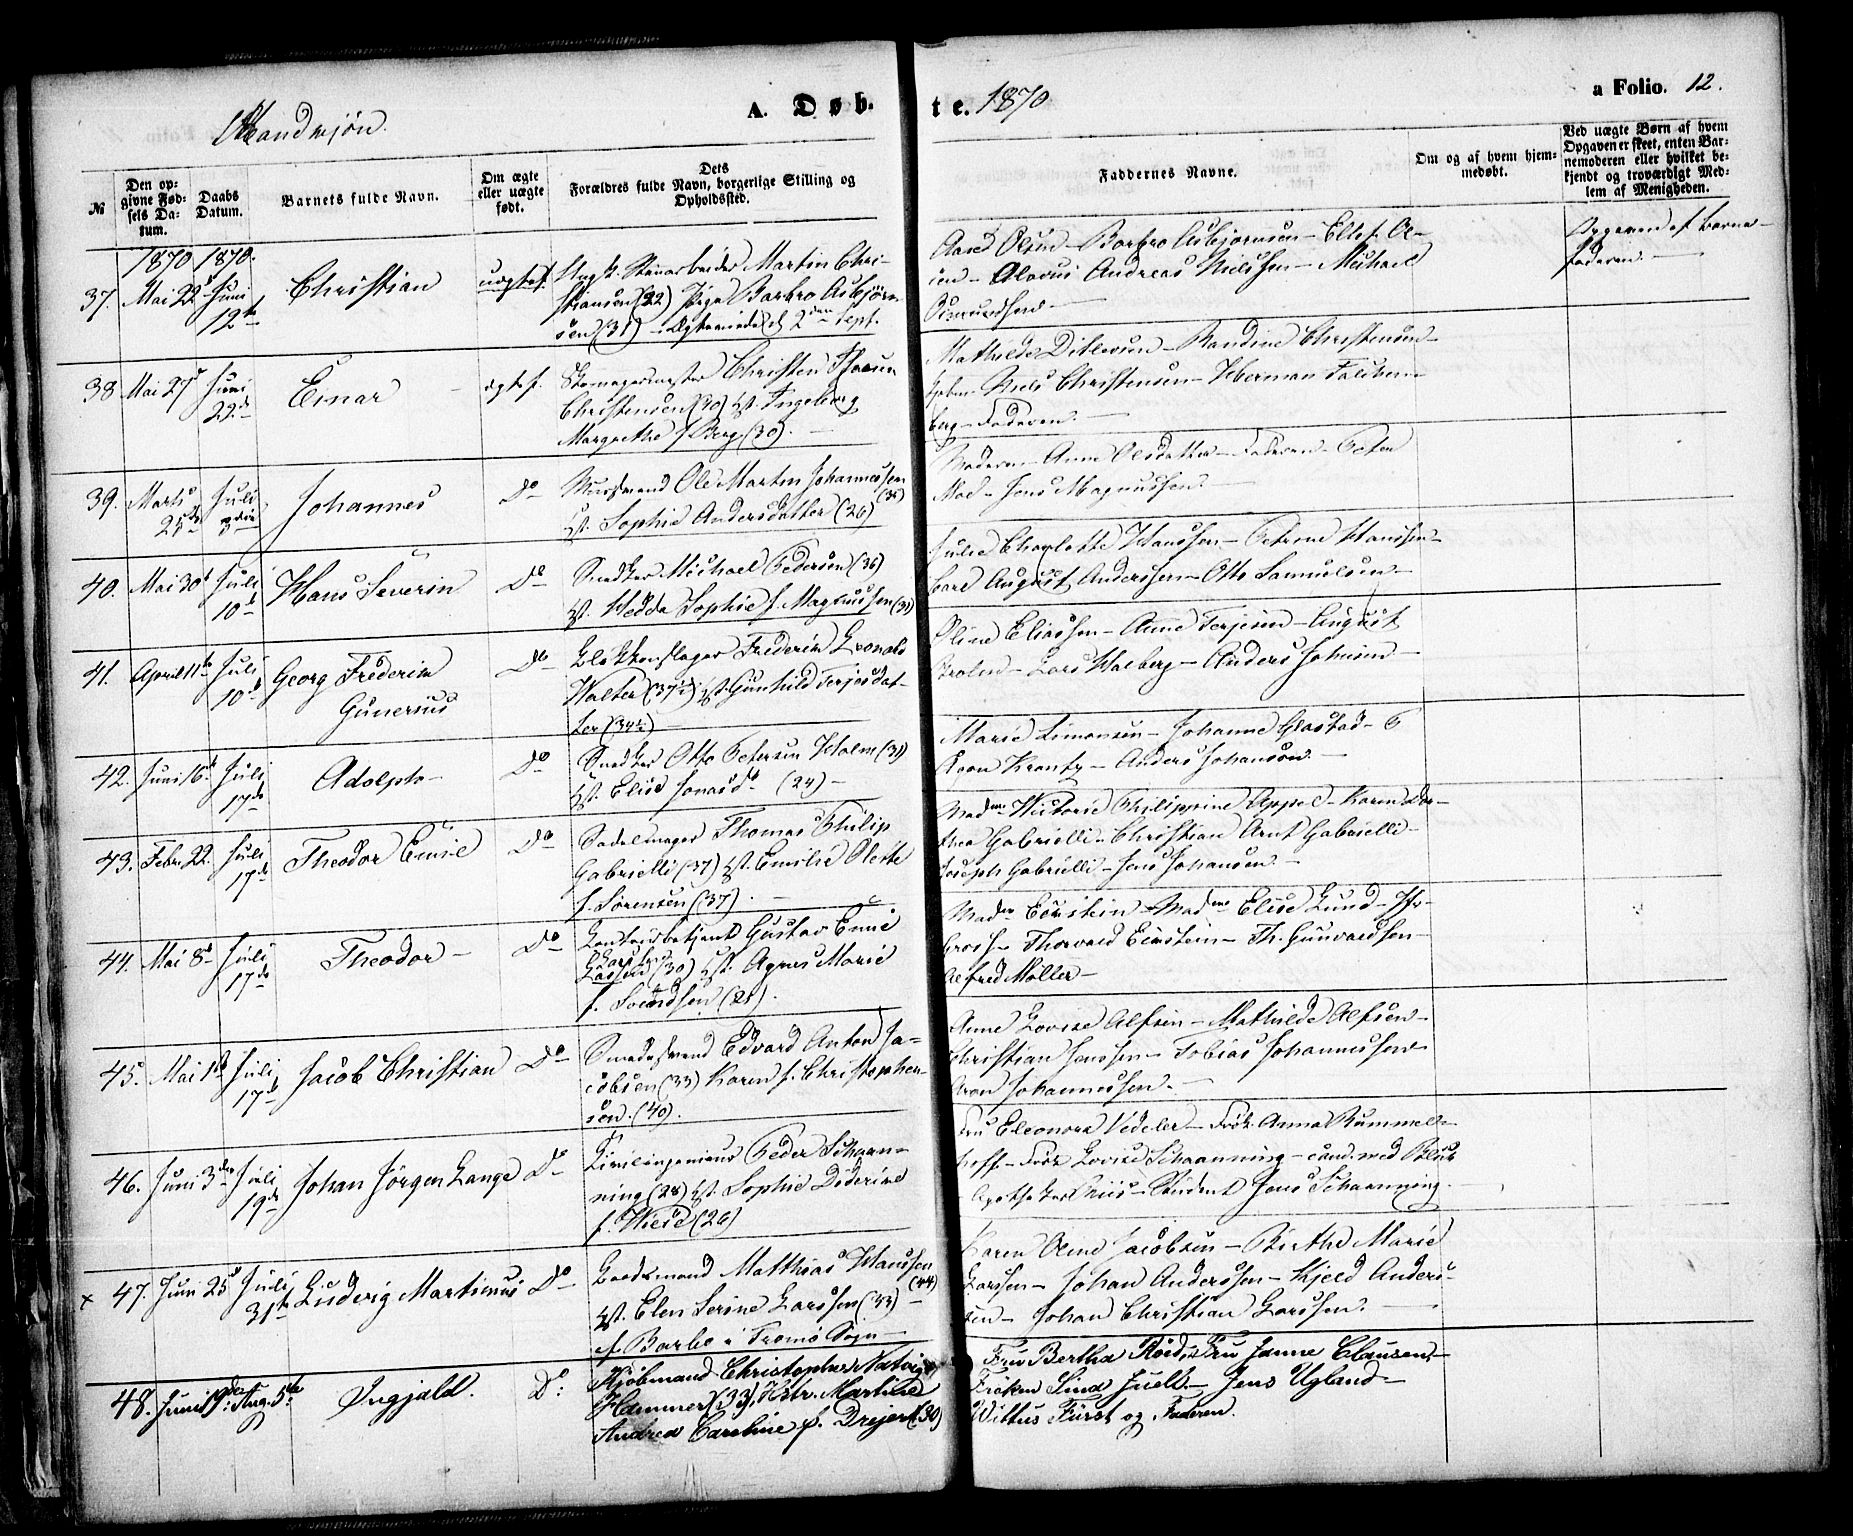 Mandkjøn.
A. Døb-
te. 1870
a Folio. 12.
№
Den op-
givne Fød-
sels Da-
tum.
Daabs
Datum.
Barnets fulde Navn.
Om ægte
eller uægte
født.
Dets
Forældres fulde Navn, borgerlige Stilling og
Opholdssted.
Faddernes Navne.
Om og af hvem hjem-
medøbt.
Ved uægte Børn af hvem
Opgaven er skeet, enten Bar-
nemoderen eller hvilket be-
kjendt og troværdigt Med-
lem af Menigheden.
1870 1870.
37. Mai 22 Juni 12te Christian uægtef. Ungk. Stenarbeider Martin Chri-
stiansen (22) Pige Barbro Asbjørn-
sen (31)
Aased Olsen - Barbro Asbjørnsen - Ellef Ol-
sen - Olavus Andreas Nielsen - Michael
Opgaven af Barne-
faderen.
38 Mai 27 Juni 22de Einar ægtef. Skomagermester Christen
Christensen (30) Hst. Ingeborg
Margrethe f. Berg (30).
Mathilde Ditlevsen - Randine Christensen -
Niels Christensen - Herman Falken-
berg - Faderen.
39. Marts 25de Juli 3die Johannes Do Ole Martin Johannessen (35)
Hst. Sophie Andersdatter (26)
Moderen - Anne Olsdatter - Faderen - Peter
Moe - Jens Magnussen.
40. Mai 30te Juli 10de Hans Severin Do Snedker Michael Pedersen (36)
Hst. Hedda Sophie f. Magnussen (31)
Julie Charlotte Hanssen - Petrine Hanssen -
Carl August Anderssen - Otto Samuelsen -
41. April 11te Juli 10de Georg Frederik
Gunerius
Do Blikkenslager Frederik Leonard
Walter (37½) Hst. Gunhild Terjesdat-
ter (34½)
Oline Eliassen - Anne Terjesen - August
Lars Walberg - Anders Johnsen -
42. Juni 16de Juli 17de Adolph - Do Snedker Otto Petersen Holm (31)
Hst. Elise Jonasd. (24) -
Marie Simonsen - Johanne Glastad - P
Aron Krantz - Anders Johansen. -
43. Febr. 22. Juli 17de Theodor Emil Do Sadelmager Thomas Philip
Gabrielli (37) Hst. Emilie Olette
f. Sørensen (37). -
Madme Victoria Philippine Appel - Karen Dor-
thea Gabrielli - Christian Arnt Gabrielli -
Joseph Gabrielli - Jens Johansen. -
44. Mai 8de Juli 17de Theodor - Do Contoirbetjent Gustav Emil
Larssen (30) Hst. Agnes Marie
f. Svendsen (28).
Madme Einstein - Madme Elise Lund - Jfr.
Gross - Thorvald Einstein - Th. Gunvardsen -
Alfred Møller -
45. Mai 1te Juli 17de Jacob Christian Do Smedesvend Edvard Anton Ja-
cobsen (33) Karen f. Christophen-
sen. (40).
Anne Lovise Alfsen - Mathilde Alfsen -
Christian Jenssen - Tobias Johannessen -
Aron Johannessen. -
46. Juni 3die Juli 19de Johan Jörgen Lange Do Civilingeniør Peder Schaan-
ning (28) Hst. Sophie Dederike
f. Wiese (26)
Fru Eleonora Vedeler - Frøk. Anna Rummel-
hoff - Frøk Lovise Schaanning - cand. med
Apotheker Riis - Student Jens Schaanning.
x 47. Juni 25de Juli 31te Ludvig Martinius Do Lodsmand Matthias Hanssen (44)
Hst. Elen Serine Larssen (33) -
af Barbo i Tromø Sogn -
Karen Oline Jacobsen - Birthe Marie
Larssen - Johan Anderssen - Kjeld Anders-
sen - Johan Christian Larssen. -
48. Juni 19de Aug. 5te Ingjald. Do: Kjöbmand Christopher Natvig
Hammer (33), Hstr. Martine
Andrea Caroline f. Drejer (30)
Fru Bertha Röed, Fru Janne Clausen, -
Fröken Lina Juell - Jens Ugland -
Wittus Fürst og Faderen.